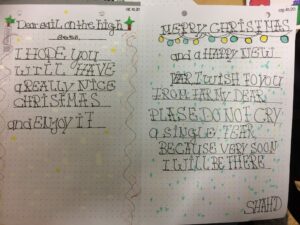 Dear sail on the high
seas
I HOPE YOU
WILL HAVE
A REALLY NICE
CHRISTMAS
and ENJOY IT
MERRY CHRISTMAS
and a HAPPY NEW
YEAR I WISH TO YOU
FROM FAR MY DEAR
PLASE DO NOT CRY
a single TEAR
BECAUSE VERY SOON
I WILL BE THERE
SHAHD